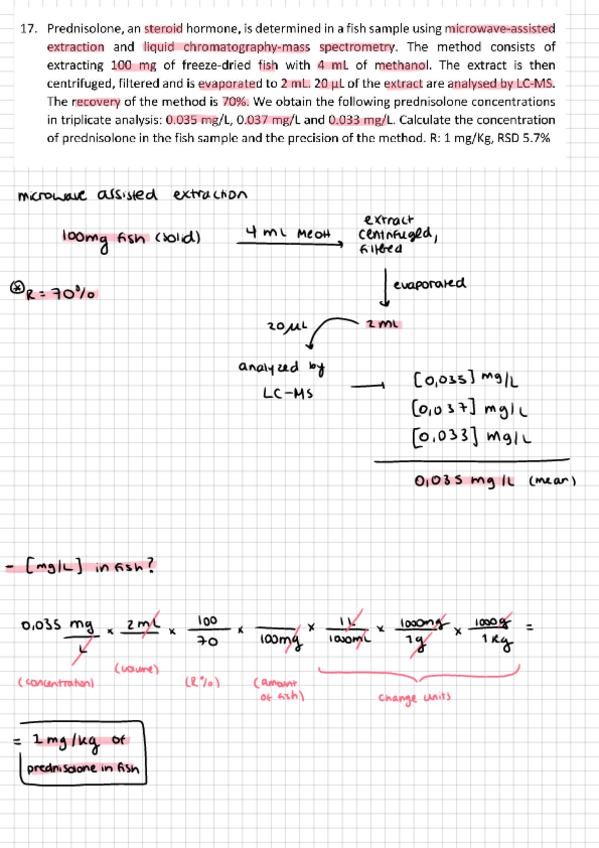 17. Prednisolone, an steroid hormone, is determined in a fish sample using microwave-assisted
extraction and liquid chromatography-mass spectrometry. The method consists of
extracting 100 mg of freeze-dried fish with 4 mL of methanol. The extract is then
centrifuged, filtered and is evaporated to 2 mL. 20 µL of the extract are analysed by LC-MS.
The recovery of the method is 70%. We obtain the following prednisolone concentrations
in triplicate analysis: 0.035 mg/L, 0.037 mg/L and 0.033 mg/L. Calculate the concentration
of prednisolone in the fish sample and the precision of the method. R: 1 mg/Kg, RSD 5.7%
microwave assisted extraction
100mg fish (solid) 4 mL MeOH extract
centrifuged,
filtered
* R = 70%
evaporated
20µL 2 mL
analyzed by
LC-MS
[0,035] mg/L
[0,037] mg/L
[0,033] mg/L
0,035 mg/L (mean)
- [mg/L] in fish?
0,035 mg/L × 2mL × 100/70 × /100mg × 1L/1000mL × 1000mg/1g × 1000g/1Kg =
(concentration) (volume) (R%) (amount of fish) change units
= 1 mg/kg of
prednisolone in fish